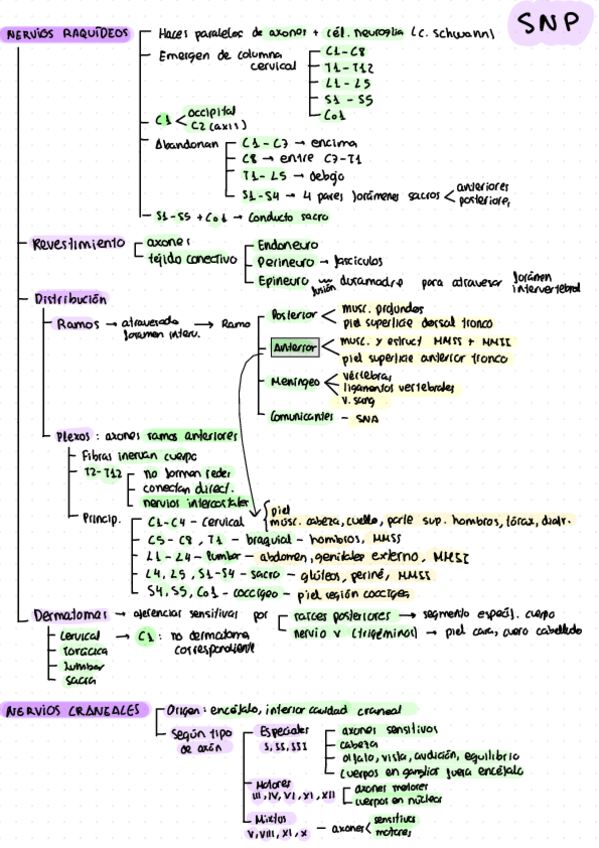 SNP
NERVIOS RAQUÍDEOS
Haces paralelos de axones + cél. neuroglia (c. Schwann)
Emergen de columna cervical
C1-C8
T1-T12
L1-L5
S1-S5
Co1
C1
occipital
C2 (axis)
Abandonan
C1-C7 → encima
C8 → entre C7-T1
T1-L5 → debajo
S1-S4 → 4 pares forámenes sacros
anteriores
posteriores
S1-S5 + Co1 → Conducto sacro
Revestimiento
axones
tejido conectivo
Endoneuro
Perineuro → fascículos
Epineuro fusión duramadre para atravesar foramen intervertebral
Distribución
Ramos → atravesado foramen interv. → Ramo
Posterior
musc. profundos
piel superficie dorsal tronco
Anterior
musc. y estruct MMSS + MMII
piel superficie anterior tronco
Meníngeo
vértebras
ligamentos vertebrales
v. sang
Comunicantes - SNA
Plexos: axones ramos anteriores
Fibras inervan cuerpo
T2-T12
no forman redes
conectan direct.
nervios intercostales
Princip.
C1-C4 - Cervical
piel
musc. cabeza, cuello, parte sup. hombros, tórax, diafr.
C5-C8, T1 - braquial - hombros, MMSS
L1-L4 - lumbar - abdomen, genitales externo, MMSI
L4, L5, S1-S4 - sacro - glúteos, periné, MMSS
S4, S5, Co1 - coccígeo - piel región coccígea
Dermatomas → aferencias sensitivas por
raíces posteriores → segmento específ. cuerpo
nervio V (trigémino) → piel cara, cuero cabelludo
Cervical → C1: no dermatoma correspondiente
Torácica
Lumbar
Sacra
NERVIOS CRANEALES
Origen: encéfalo, interior cavidad craneal
Según tipo de axón
Especiales
S, SS, SSI
axones sensitivos
cabeza
olfato, vista, audición, equilibrio
cuerpos en ganglios fuera encéfalo
Motores
III, IV, VI, XI, XII
axones motores
cuerpos en núcleos
Mixtos
V, VIII, XI, X
axones
sensitivos
motores